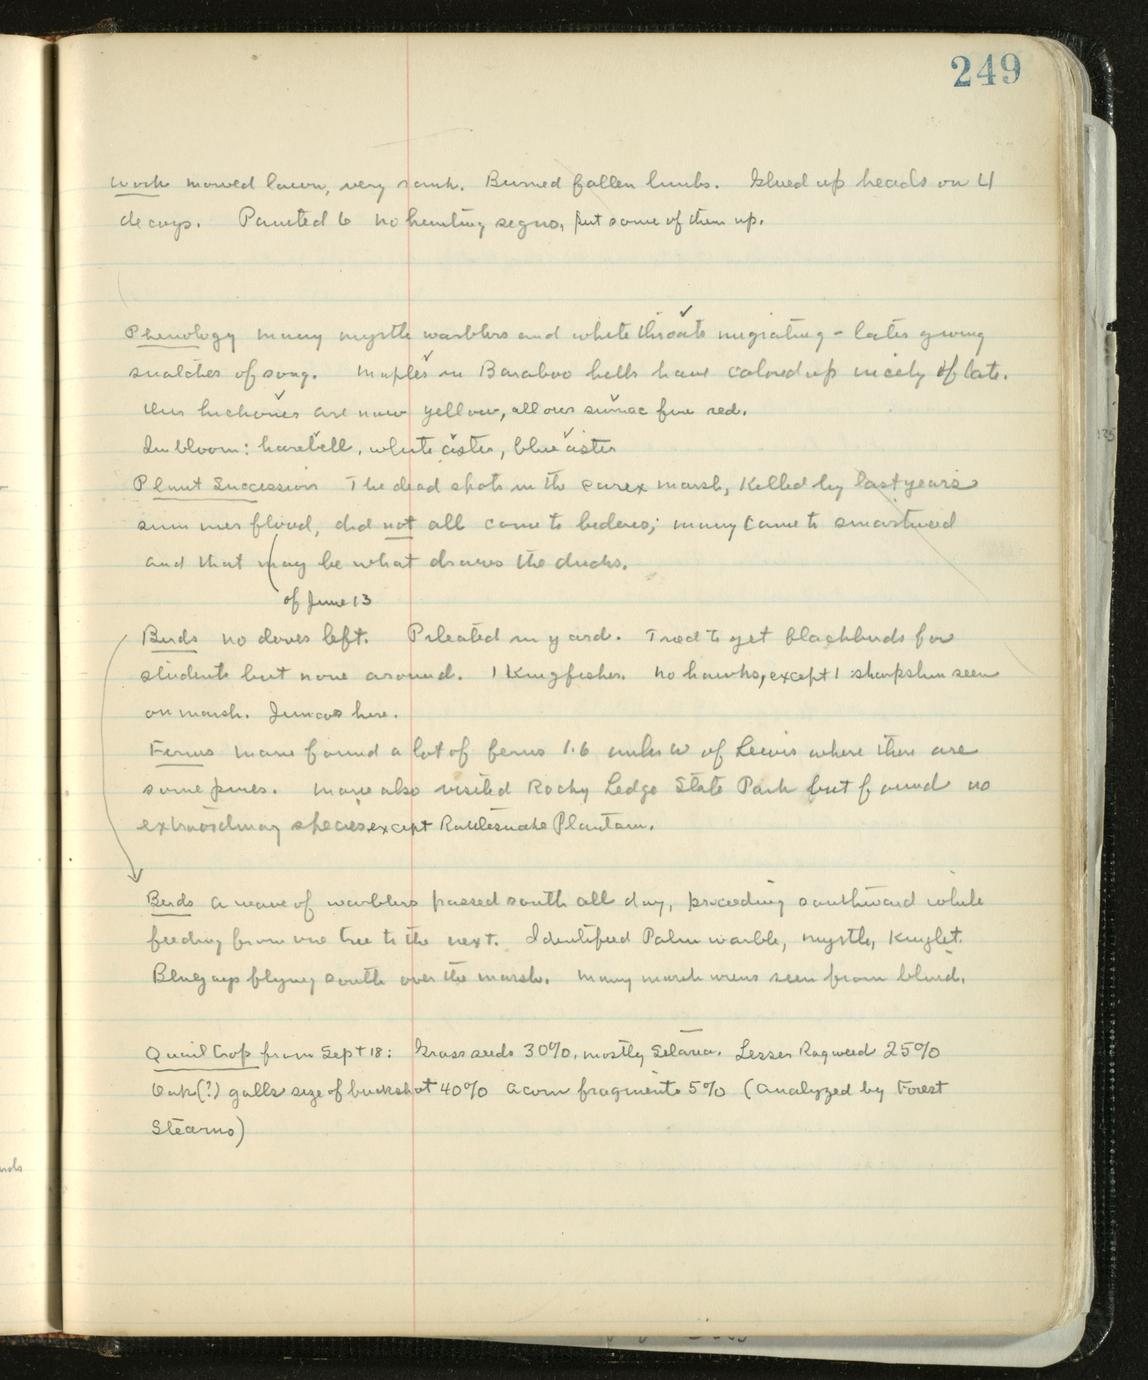 249
Work mowed lawn, very rank. Burned fallen limbs. Glued up heads on 4
decoys. Painted 6 no hunting signs, put some of them up.
Phenology many myrtle warblers and white throats migrating - later giving
snatches of song. Maples in Baraboo hills have colored up nicely of late.
Our hickories are now yellow, all our sumac fine red.
In bloom: harebell, white aster, blue aster
Plant Succession The dead spots in the carex marsh, killed by last years
summer flood, did not all come to bidens; many came to smartweed
and that may be what draws the ducks.
of June 13
Birds no doves left. Pileated in yard. Tried to get blackbirds for
students but none around. 1 Kingfisher. No hawks, except 1 sharpshin seen
on marsh. Juncos here.
Ferns Marie found a lot of ferns 1.6 miles W of Lewis where there are
some pines. Marie also visited Rocky Ledge State Park but found no
extraordinary species except Rattlesnake Plantain.
Birds A wave of warblers passed south all day, proceeding southward while
feeding from one tree to the next. Identified Palm warble, myrtle, Kinglet.
Bluejays flying south over the marsh. Many marsh wrens seen from blind.
Quail Crop from Sept 18: Grass seeds 30%, mostly Setaria. Lesser Ragweed 25%
Oak(?) galls size of buckshot 40% Acorn fragments 5% (Analyzed by Forest
Stearns)